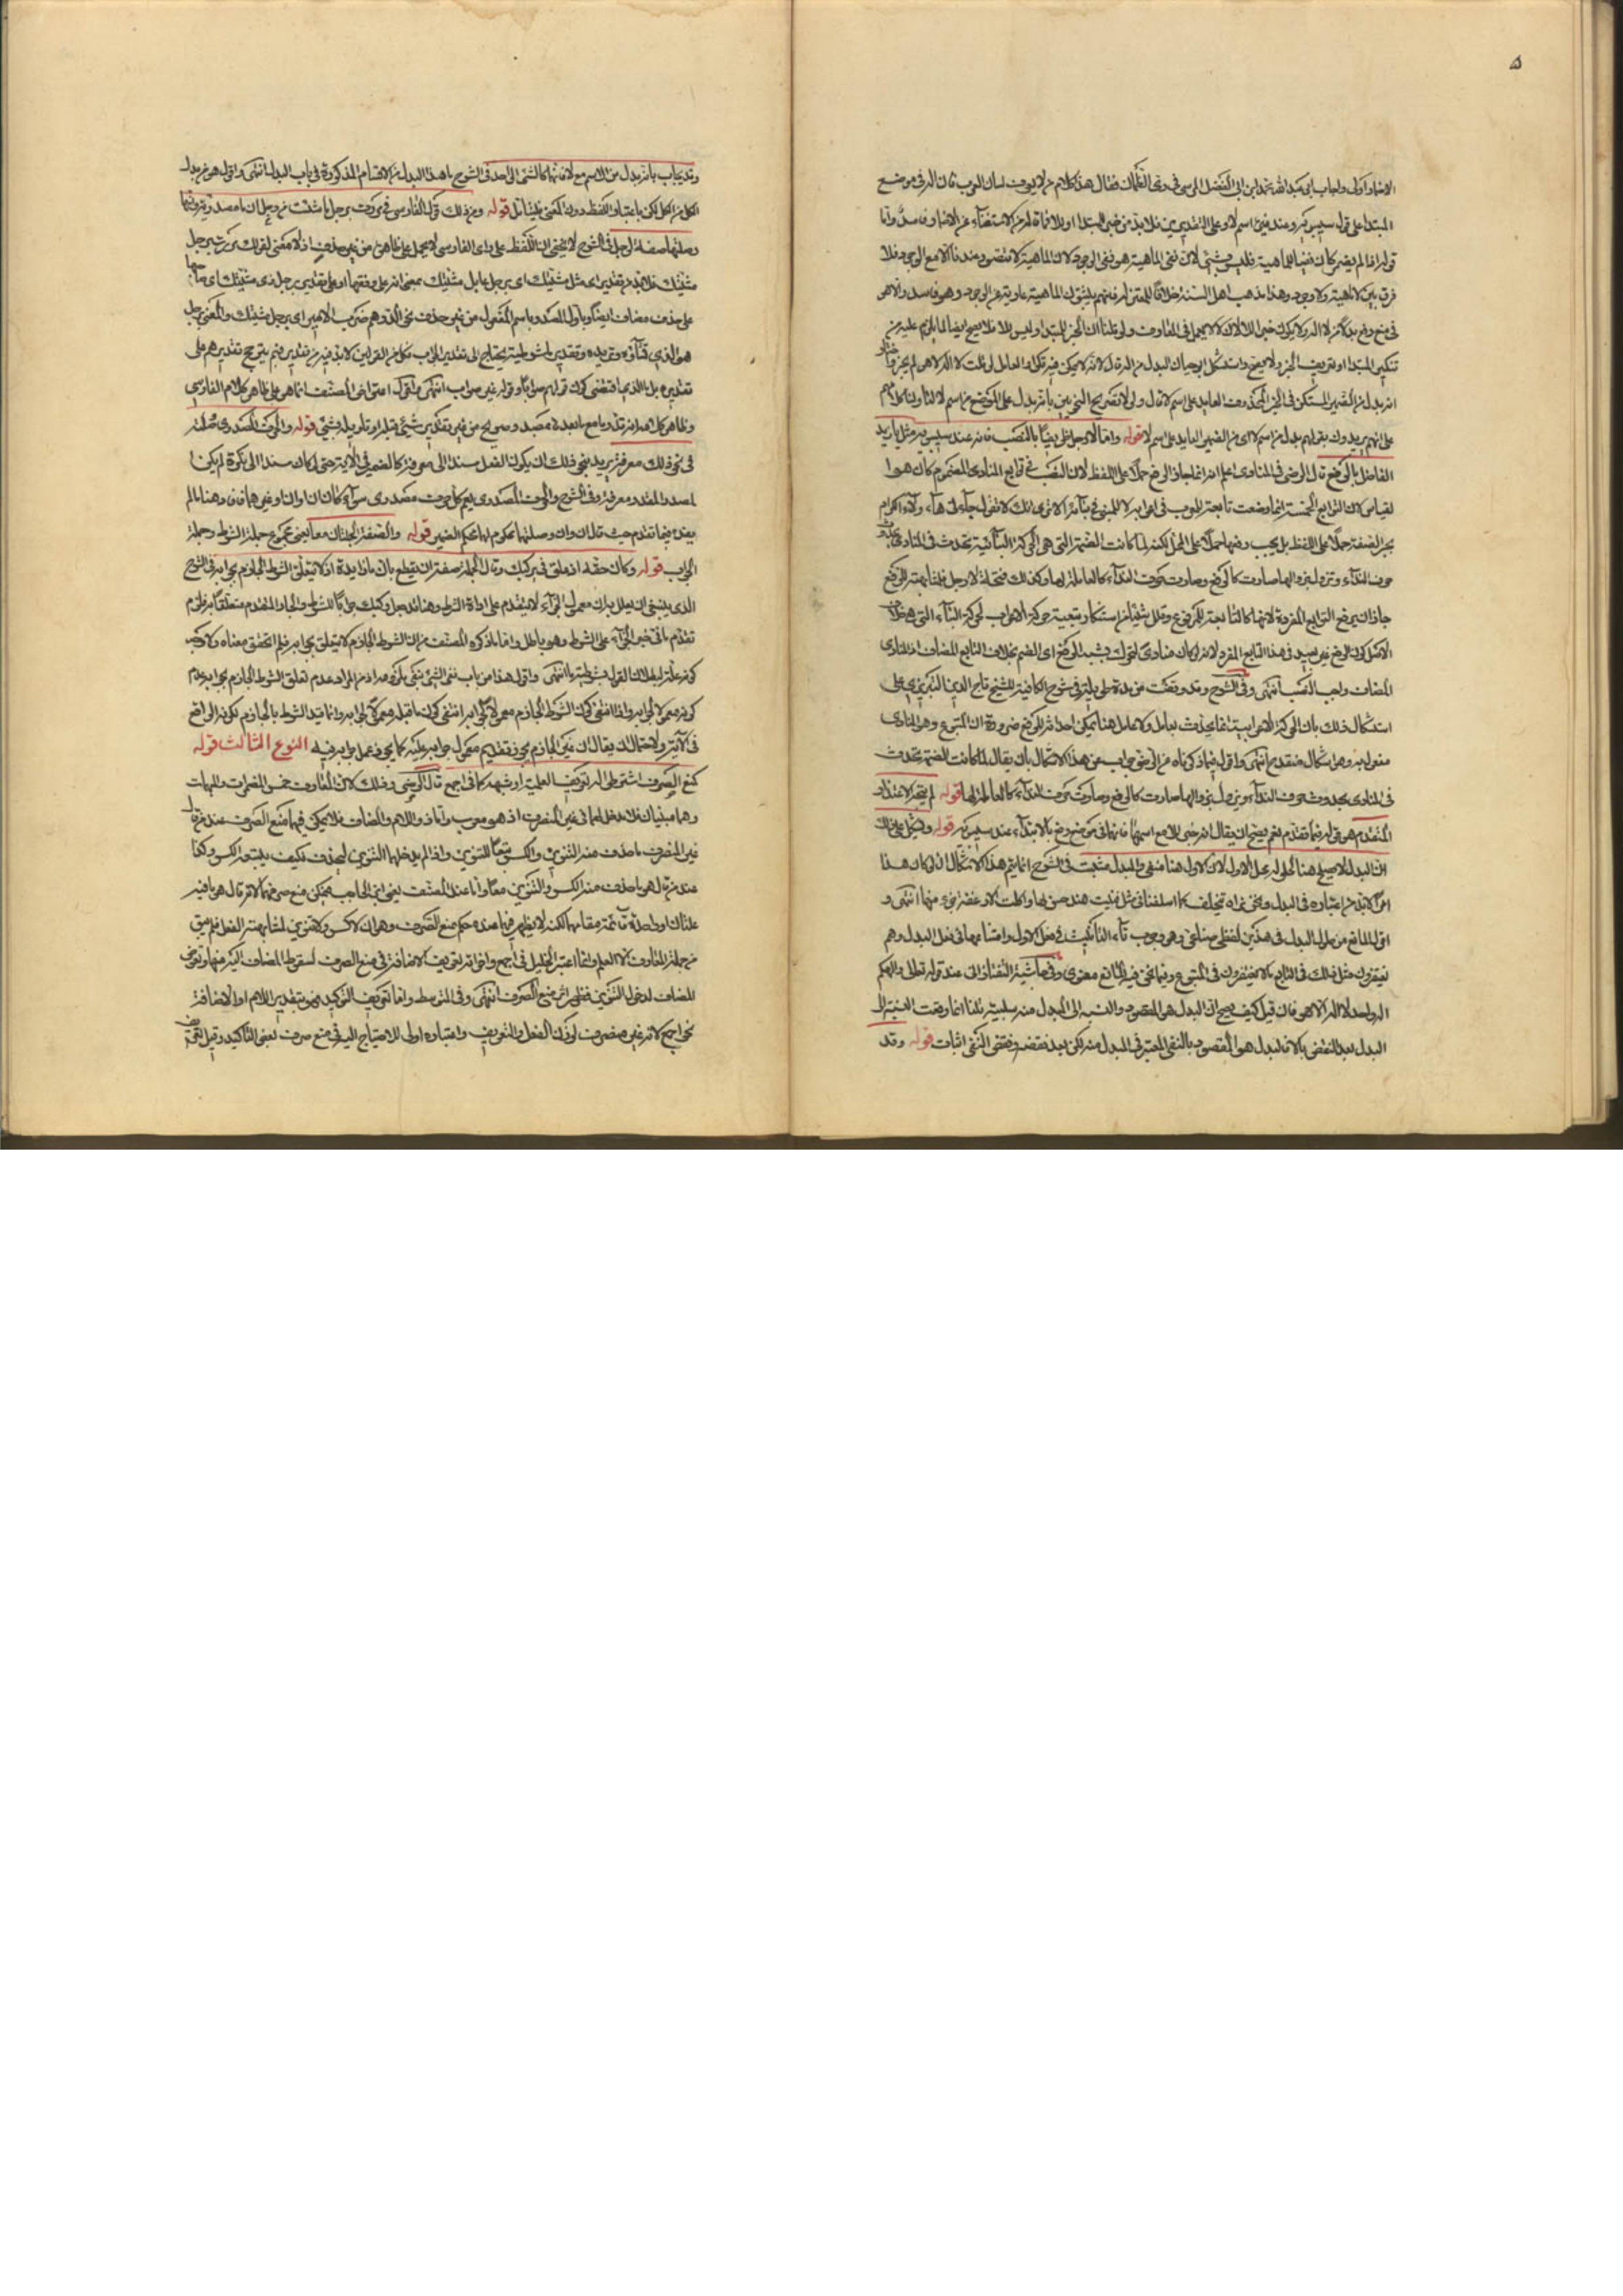 ۵
الاضمار اولى واجاب ابو عبد الله محمد بن ابى الفضل المرسى فى رى الظمآن فقال هذا كلام من لا يعرف لسان العرب فان اله فى موضع
المبتدا على قول سيبويه وعند غيره اسم لا وعلى التقديرين فلا بد من خبر المبتدا او للا فما قاله من الاستغناء عن الاضمار فاسد واما
قوله اذا لم يضمر كان نفيا للماهية فليس بشئ لان نفى الماهية هو نفى الوجود لان الماهية لا تتصور عندنا الا مع الوجود فلا
فرق بين لا ماهية ولا وجود وهذا مذهب اهل السنة خلافا للمعتزلة فانهم يثبتون الماهية عارية عن الوجود وهو فاسد والا هو
فى موضع رفع بدلا من لا اله ولا يكون خبرا للا لان لا لا يعمل فى المعارف ولو قلنا ان الخبر للمبتدا وليس للا فلا يصح ايضا لما يلزم عليه من
تنكير المبتدا او تعريف الخبر واستشكل ابو حيان البدل من اله قال لانه لا يمكن فيه تكرار العامل لو قلت لا اله لا هو لم يجز
انه بدل من الضمير المستكن فى الخبر المحذوف العايد على اسم لا قال ولولا تصريح النحويين بانه بدل على الموضع من اسم لا لتأولنا كلامهم
على انهم يريدون بقولهم بدل من اسم لا اى من الضمير العايد على اسم لا قوله واما لا رجل ظريفا بالنصب فانه عند سيبويه مثل يا زيد
الفاضل بالرفع قال الرضى فى المنادى اعلم انه انما جاز الرفع حملا على اللفظ لان النصب فى توابع المنادى المضموم كان هو
القياس لان التوابع الخمسة انما وضعت تابعة للمعرب فى اعرابه لا للمبنى فى بنائه الا ترى انك لا تقول جاءنى هؤلاء الكرام
بجر الصفة حملا على اللفظ بل يجب رفعها حملا على المحل لكنه لما كانت الضمة التى هى الحركة البنائية تحدث فى المنادى
حرف النداء وتزول بزوالها صارت كالرفع وصارت حروف النداء كالعاملة لها وكذلك فتحة لا رجل فلمشابهة الرفع
جاز ان يرفع التوابع المفردة لانها كالتابعة للمرفوع
الاصل كون الرفع غير بعيد فى هذا التابع المفرد لانه لو كان منادى لتحرك بشبه الرفع اى الضم بخلاف التابع المضاف اذ المنادى
المضاف واجب النصب انتهى وفى الشرح وقد وقفت من مدة طويلة فى شرح الكافية للشيخ تاج الدين التبريزى على
استشكال ذلك بان الحركة الاعرابية انما تحدث بعامل ولا عامل هنا يمكن احداثه للرفع ضرورة ان المتبوع وهو المنادى
مفعول به وهو اشكال متقدم انتهى واقول فيما ذكرناه عن الرضى جواب عن هذا الاشكال بان يقال لما كانت الضمة تحدث
فى المنادى بحدوث حرف النداء وتزول بزوالها صارت كالرفع وصارت حرف النداء كالعاملة لها قوله لم يتجه الاعتذار
المتقدم هو قوله فيما تقدم نعم يصح ان يقال انه خبر للا مع اسمها فانهما فى موضع رفع بالابتداء عند سيبويه قوله ويشكل على ذلك
ان البدل لا يصلح هنا لحلوله محل الاول لان الاول هنا منفى والبدل مثبت فى الشرح انما يتم هذا الاشكال ان لو كان هذا
امرا لا بد من اعتباره فى البدل ونحن نراه تخلف كما اسلفنا فى مثل فتنت هند حسنها واكلت الارغفة جزء منها انتهى و
اقول المانع من حلول البدل فى هذين لفظى صناعى وهو وجوب تاء التأنيث فى فعل الاول وامتناعها فى فعل البدل وهم
يغتفرون مثل ذلك فى التابع ما لا يغتفرون فى المتبوع وفيما نحن فيه المانع معنوى وفى حاشية التفتازانى عند قوله تعالى والهكم
اله واحد لا اله الا هو فان قيل كيف يصح ان البدل هو المقصود والنسبة الى المبدل منه سلبية قلنا انما وقعت النسبة الى
البدل بعد النقض بالا فالبدل هو المقصود بالنفى المعتبر فى المبدل منه لكن بعد نقضه ونقض النفى اثبات قوله وقد
وقد يجاب بانه بدل من الاسم مع لا فانهما كالشئ الواحد فى الشرح ما هذا البدل من الاقسام المذكورة فى باب البدل انتهى واقول هو من بدل
الكل من الكل لكن باعتبار اللفظ دون المعنى فليتأمل قوله ومن ذلك قول الفارسى فى مررت برجل ما شئت من رجل ان ما مصدرية وانها
وصلتها صفة لرجل فى الشرح لا يخفى ان اللفظ على راى الفارسى لا يحمل على ظاهره من غير حذف اذ لا معنى لقولك مررت برجل
مشيتك فلا بد من تقدير اى مثل مشيتك اى برجل مماثل مشيتك بمعنى انه على وفقها او على تقدير برجل ذى مشيتك اى صاحبها
على حذف مضاف ايضا وباول المصدر باسم المفعول من غير حذف نحو الدرهم ضرب الامير اى برجل مشيئك والمعنى برجل
هو الذى تشاؤه وتريده وتقدير ما شرطية يحتاج الى تقدير الجواب فكل من القولين لا بد فيه من تقدير فبم يترجح تقديرهم على
تقديره بل ما الذى اقتضى كون قولهم صوابا وقوله غير صواب انتهى واقول اعتراض المصنف انما هو على ظاهر كلام الفارسى
وظاهر كلامه انه تأول ما مع ما بعده بمصدر صريح من غير تقدير شئ قبله او تأويله بشئ قوله والحرف المصدرى وصلته
فى نحو ذلك معرفة يريد بنحو ذلك ان يكون الفعل مسندا الى معرفة كالضمير فى الآية حتى لو كان مسندا الى نكرة لم يكن
المصدر المقدر معرفة وفى الشرح والحرف المصدرى يعم كل حرف مصدرى سواء كان ان او ان او غيرهما فان وهنا ما لم
يقدم فيما تقدم حيث قال ان وان وصلتهما محكوم لهما بحكم الضمير قوله والصفة الجملتان معا يعنى مجموع جملة الشرط وجملة
الجواب قوله وكان حقه اذ علق فى بركبك وقال الجملة صفة ان يقطع بان ما زايدة اذ لا يتعلق الشرط الجازم بجوابه فى الشرح
الذى ينبغى ان يعلل به ان معمول الجزاء لا يتقدم على اداة الشرط وهنا قد جعل ركبك جوابا للشرط والجار المتقدم متعلقا به فلزم
تقدم ما فى حيز الجزاء على الشرط وهو باطل واما ما ذكره المصنف من ان الشرط الجازم لا يتعلق بجوابه فلم اتحقق معناه ولا وجه
كونه علة لبطلان القول بشرطية ما انتهى واقول هذا من باب نفى الشئ بنفى ملزومه اذ من المراد عدم تعلق الشرط الجازم بجوابه عدم
كونه معمولا لجوابه واذا انتفى كون الشرط الجازم معمولا لجوابه انتفى كون ما قبله معمولا لجوابه وانما قيد الشرط بالجازم لكونه الواقع
فى الآية ولاحتمال ان يقال ان غير الجازم يجوز تقديم معمول جوابه عليه كما يجوز عمل جوابه فيه النوع الثالث قوله
كمنع الصرف اشتراط له تعريف العلمية او شبهه كما فى اجمع قال الرضى وذلك لان المعارف خمس المضمرات والمبهمات
وهما مبنيان فلا مدخل لهما فى غير المنصرف اذ هو معرب واما ذو اللام والمضاف فلا يمكن فيهما منع الصرف عند من قال
غير المنصرف ما حذف منه التنوين والكسر تبعا للتنوين واذا لم يدخلهما التنوين ليحذف فكيف يتبعه الكسر وكذا
عند من قال هو ما حذف منه الكسر والتنوين معا واما عند المصنف يعنى ابن الحاجب فيمكن منع صرفهما لانه قال هو ما فيه
علتان او واحدة قائمة مقامهما لكنه لا يظهر فيهما عنده حكم منع الصرف وهو ان لا كسر ولا تنوين لمشابهة الفعل فلم يبق
من جملة المعارف الا العلم وانما اعتبر الخليل فى اجمع واخواته تعريف الاضافة فى منع الصرف لسقوط المضاف اليه منها وتعرض
المضاف لدخول التنوين فظهر اثر منع الصرف انتهى وفى المتوسط واما تعريف التوكيد فهو بتقدير اللام او الاضافة
نحو اجمع لانه غير منصرف لوزن الفعل والتعريف واعتباره اولى للاحتياج اليه فى منع صرف بعض التأكيد وقيل